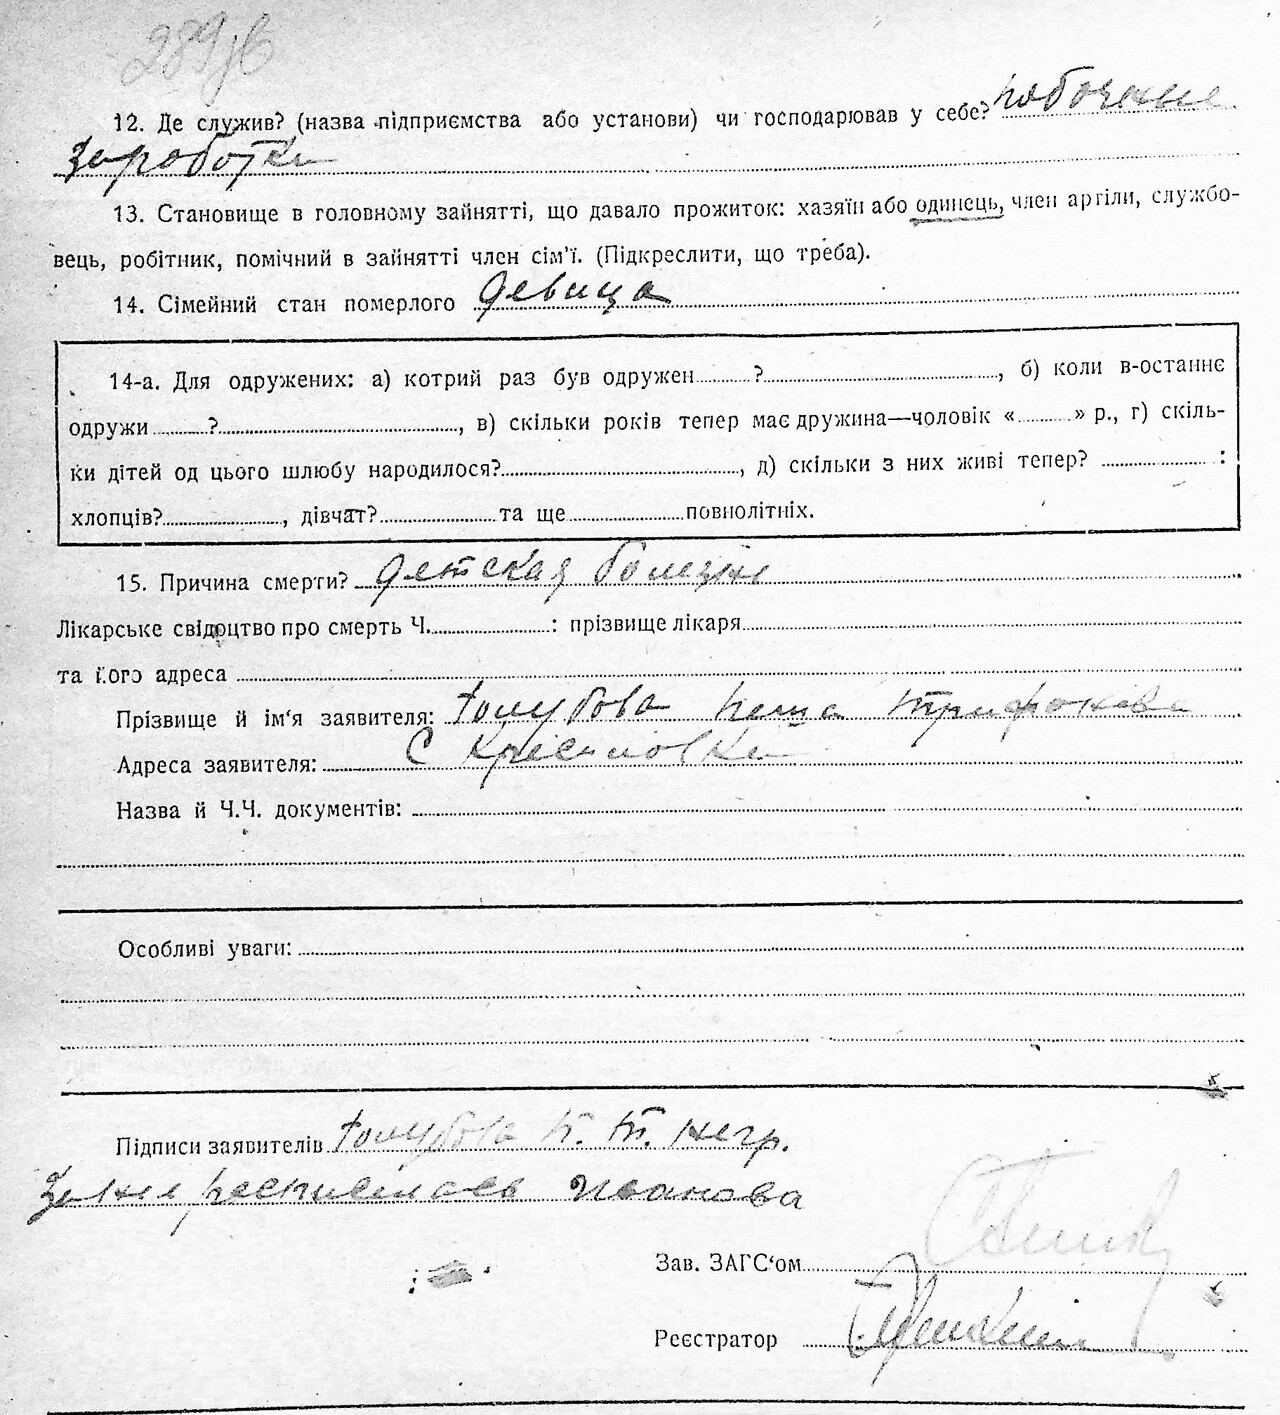 289зв
12. Де служив? (назва підприємства або установи) чи господарював у себе? побочные
заработки
13. Становище в головному зайнятті, що давало прожиток: хазяїн або одинець, член артіли, службо-
вець, робітник, помічний в зайнятті член сім'ї. (Підкреслити, що треба).
14. Сімейний стан померлого девица
14-а. Для одружених: а) котрий раз був одружен ........ ? ........, б) коли в-останнє
одружи ........ ? ........, в) скільки років тепер має дружина—чоловік «........» р., г) скіль-
ки дітей од цього шлюбу народилося? ........, д) скільки з них живі тепер? ........ :
хлопців? ........, дівчат? ........ та ще ........ повнолітніх.
15. Причина смерти? детская болезнь
Лікарське свідоцтво про смерть Ч. ........ : прізвище лікаря
та його адреса
Прізвище й ім'я заявителя: Голубова
Адреса заявителя: с
Назва й Ч.Ч. документів:
Особливі уваги:
Підписи заявителів Голубова П. Т. негр.
За нее расписалась Иванова
Зав. ЗАГС'ом
Реєстратор